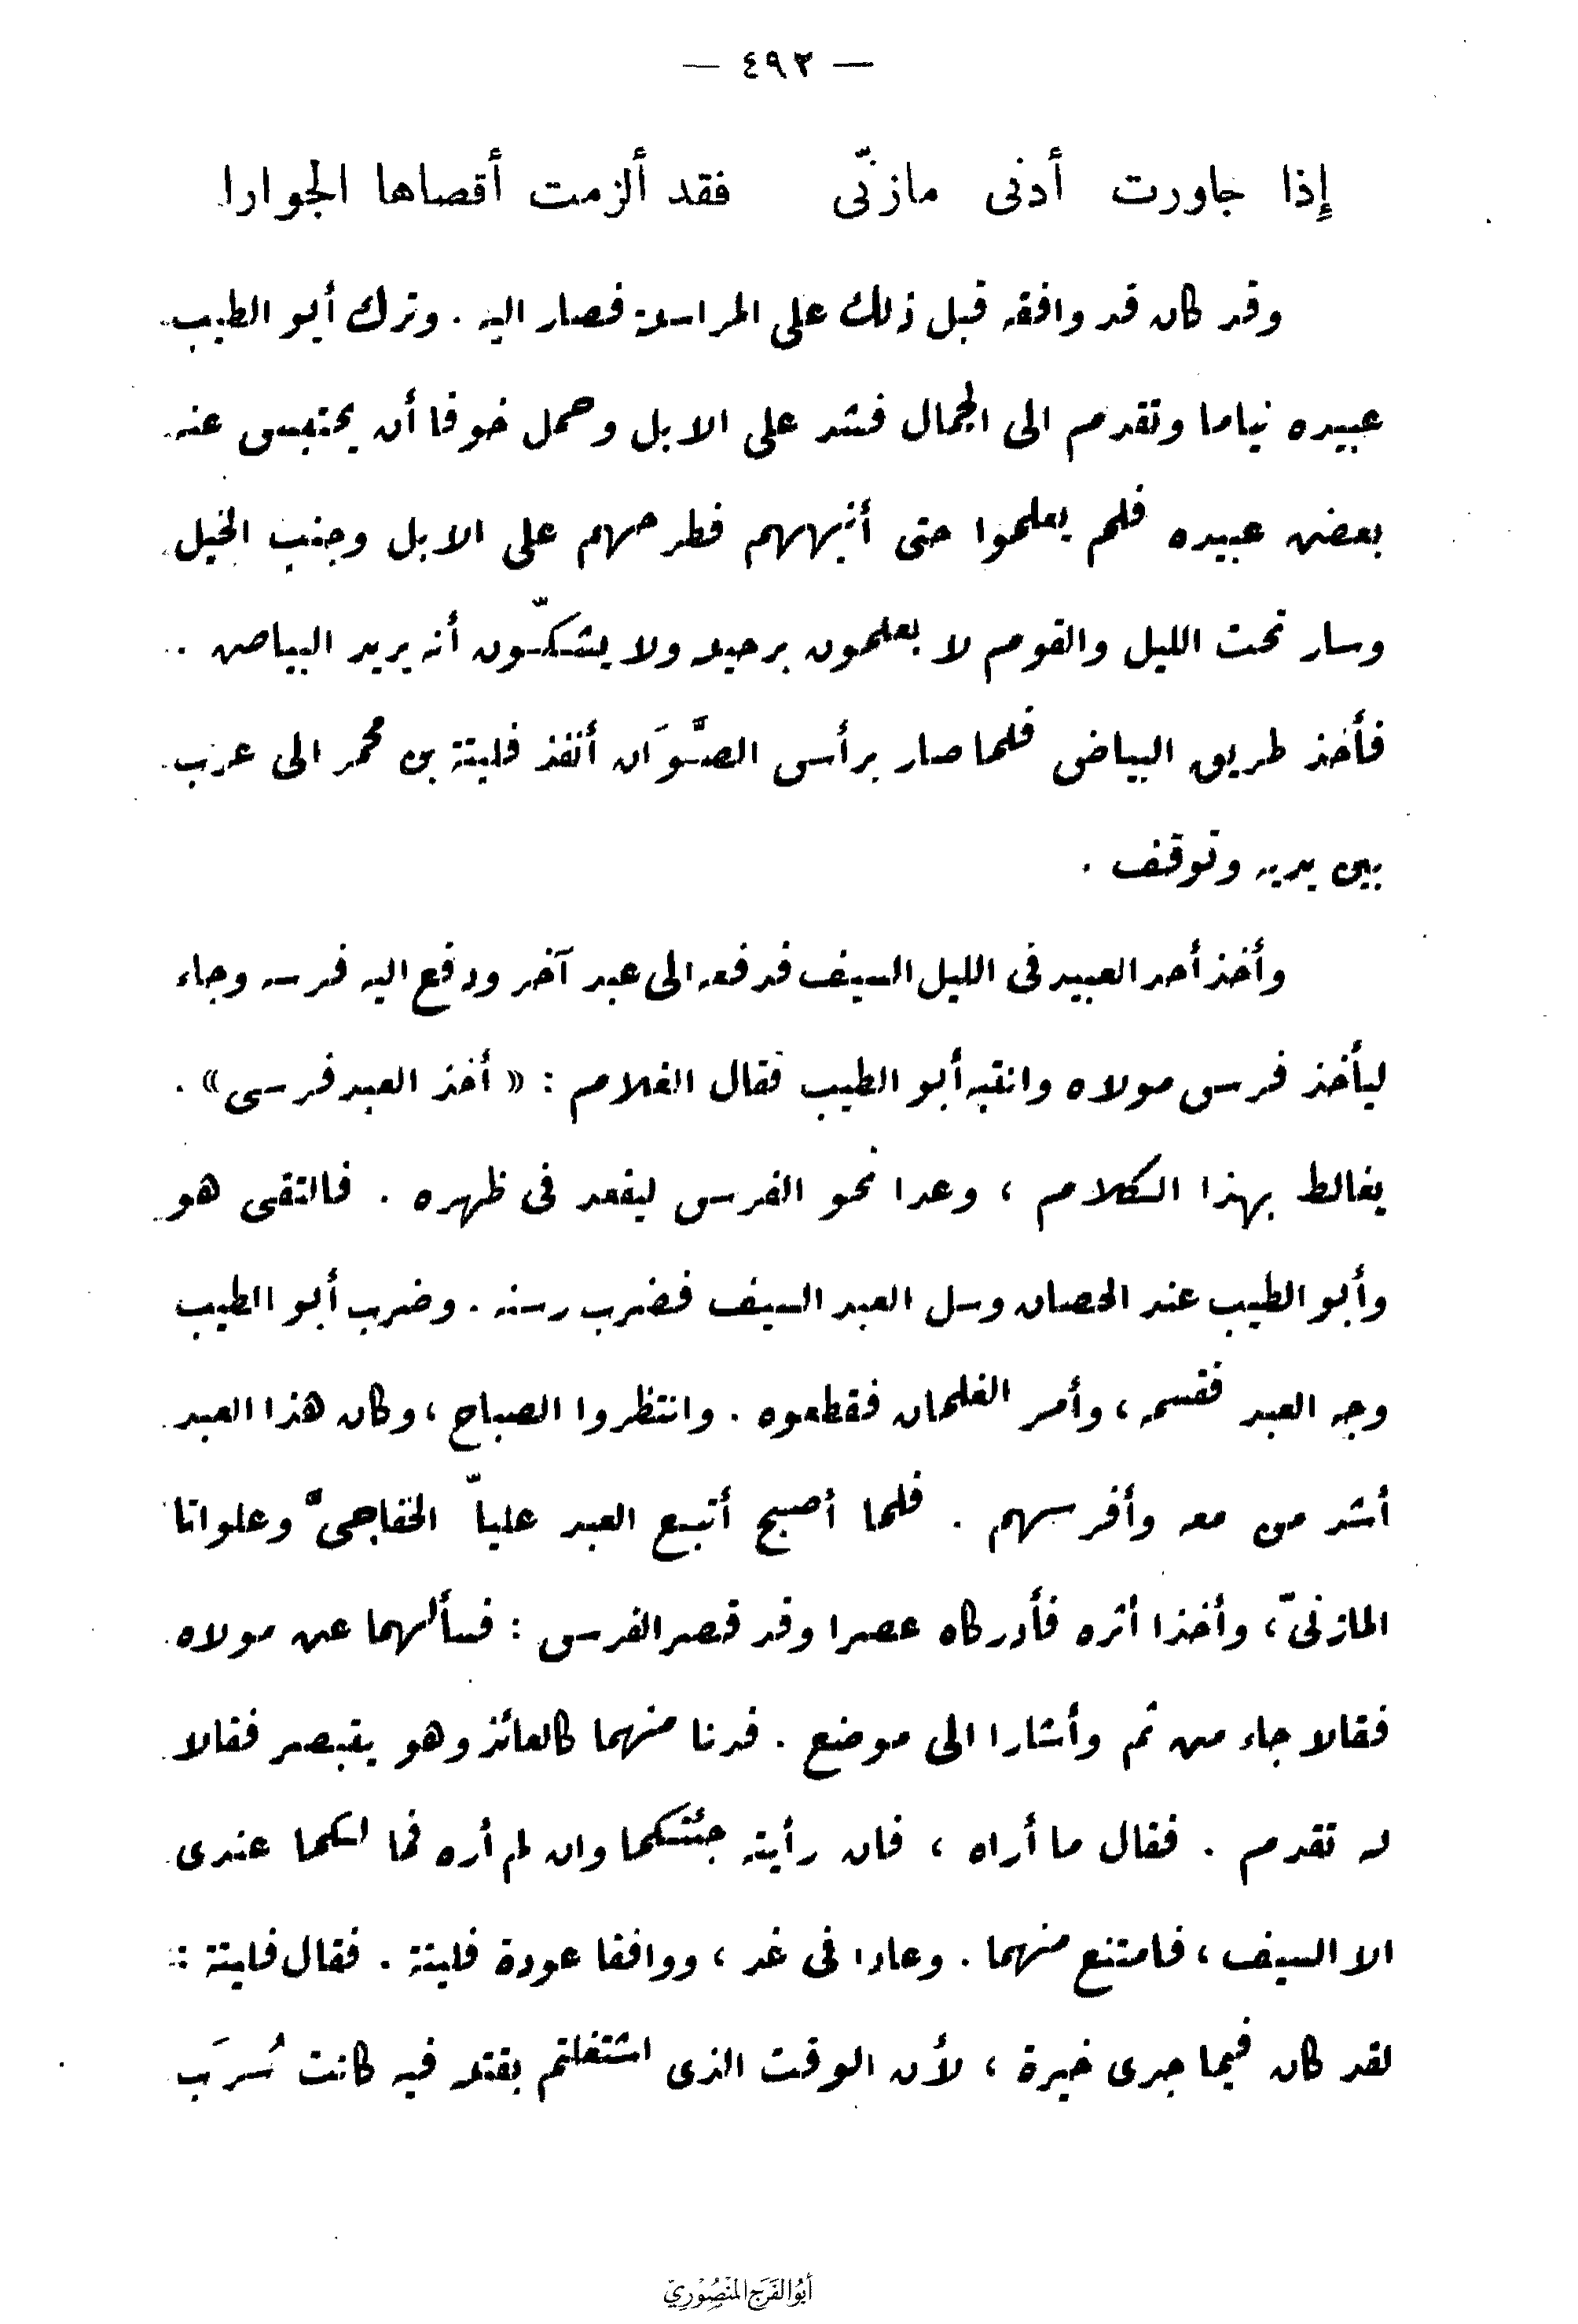 — ٤٩٢ —
إذا جاورت أدنى مازنّى فقد ألزمت أقصاها الجوارا
وقد كان قد وافقه قبل ذلك على المراسلة فصار اليه . وترك أبو الطيب
عبيده نياما وتقدم الى الجمال فشد على الابل وحمل خوفا أن يحتبس عنه
بعض عبيده فلم يعلموا حتى أنبههم فطرحهم على الابل وجنب الخيل
وسار تحت الليل والقوم لا يعلمون برحيله ولا يشكّون أنه يريد البياض .
فأخذ طريق البياض فلما صار برأس الصَّوَان أنفذ فليتة بن محمد الى عرب
بين يديه وتوقف .
وأخذ أحد العبيد فى الليل السيف فدفعه الى عبد آخر ودفع اليه فرسه وجاء
ليأخذ فرس مولاه وانتبه أبو الطيب فقال الغلام : « أخذ العبد فرسى » .
يغالط بهذا الكلام ، وعدا نحو الفرس ليقعد فى ظهره . فالتقى هو
وأبو الطيب عند الحصان وسل العبد السيف فضرب رسنه . وضرب أبو الطيب
وجه العبد فقسمه ، وأمر الغلمان فقطعوه . وانتظروا الصباح ، وكان هذا العبد
أشد من معه وأفرسهم . فلما أصبح أتبع العبد علياّ الخفاجىَّ وعلوانا
المازنىّ ، وأخذا أثره فأدركاه عصرا وقد قصر الفرس : فسألهما عن مولاه
فقالا جاء من ثم وأشارا الى موضع . فدنا منهما كالعائذ وهو يتبصر فقالا
له تقدم . فقال ما أراه ، فان رأيته جئتكما وان لم أره فما لكما عندى
الا السيف ، فامتنع منهما . وعادا فى غد ، ووافقا عودة فليتة . فقال فليتة :
لقد كان فيما جرى خيرة ، لأن الوقت الذى اشتغلتم بقتله فيه كانت سُرَب
أبو الفرج المنصوري